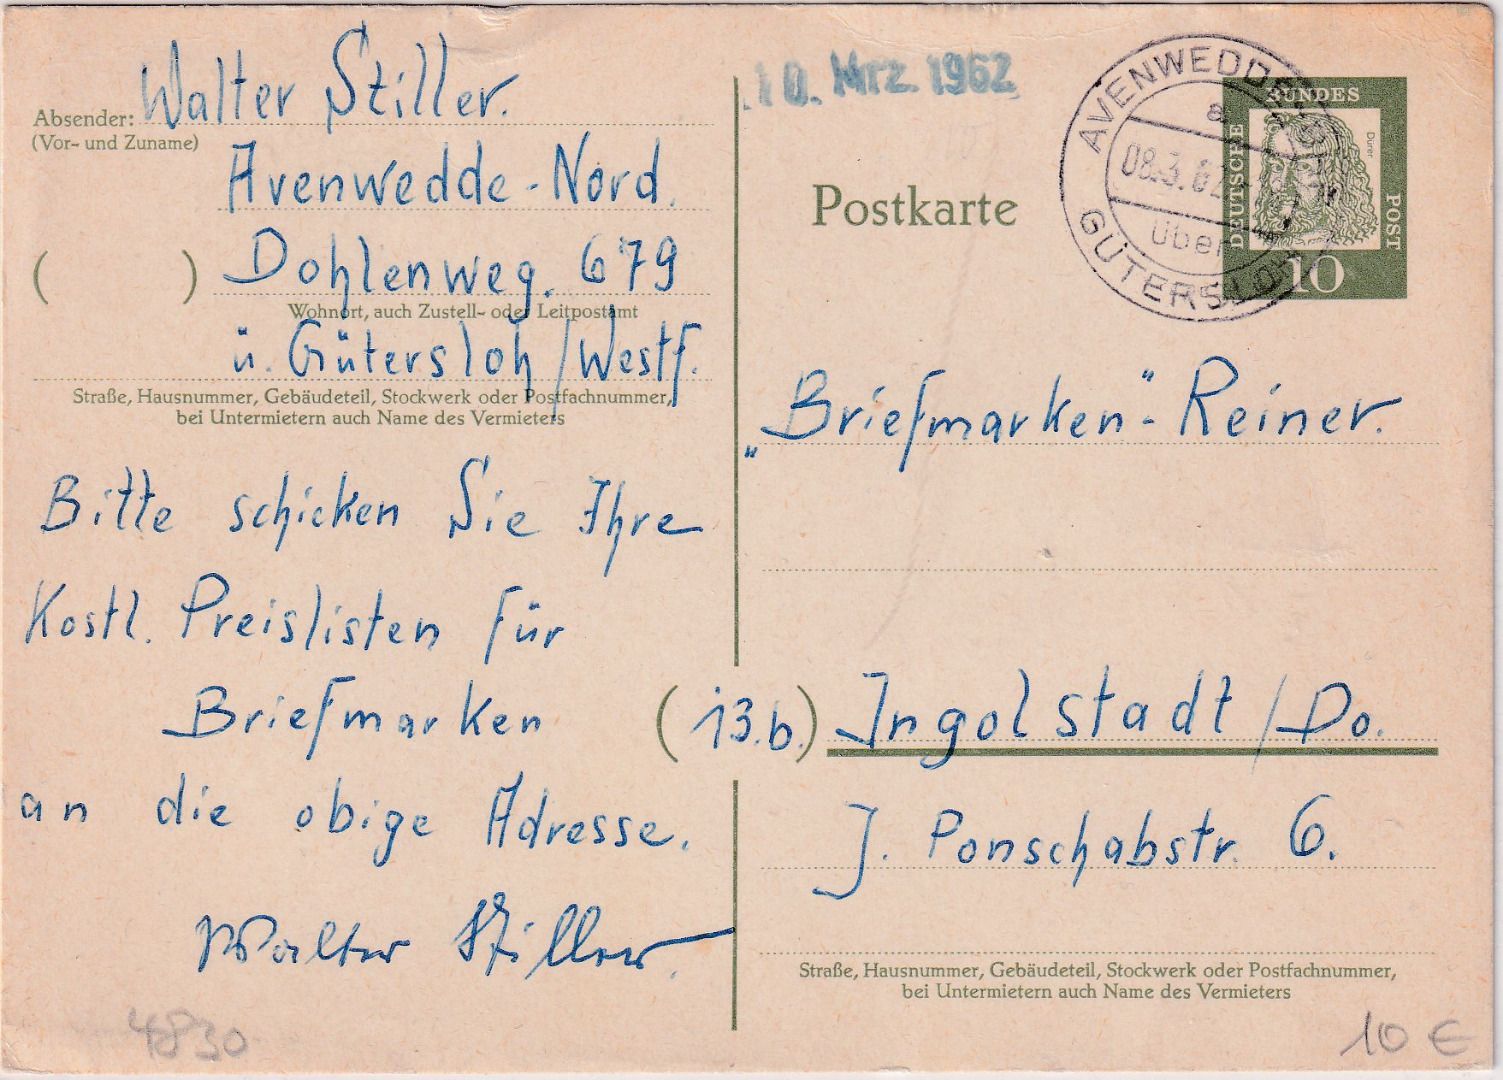 Absender: Walter Stiller.
(Vor- und Zuname)
Avenwedde-Nord.
( ) Dohlenweg. 679
Wohnort, auch Zustell- oder Leitpostamt
ü. Gütersloh/Westf.
Straße, Hausnummer, Gebäudeteil, Stockwerk oder Postfachnummer,
bei Untermietern auch Name des Vermieters
Bitte schicken Sie Ihre
Kostl. Preislisten für
Briefmarken
an die obige Adresse.
Walter Stiller.
4830
10. Mrz. 1962
AVENWEDDE
a
08.3.62
über
GÜTERSLOH
DEUTSCHE
BUNDES
POST
Dürer
10
Postkarte
„Briefmarken"-Reiner.
(13.b.) Ingolstadt/Do.
J. Ponschabstr. 6.
Straße, Hausnummer, Gebäudeteil, Stockwerk oder Postfachnummer,
bei Untermietern auch Name des Vermieters
10 €